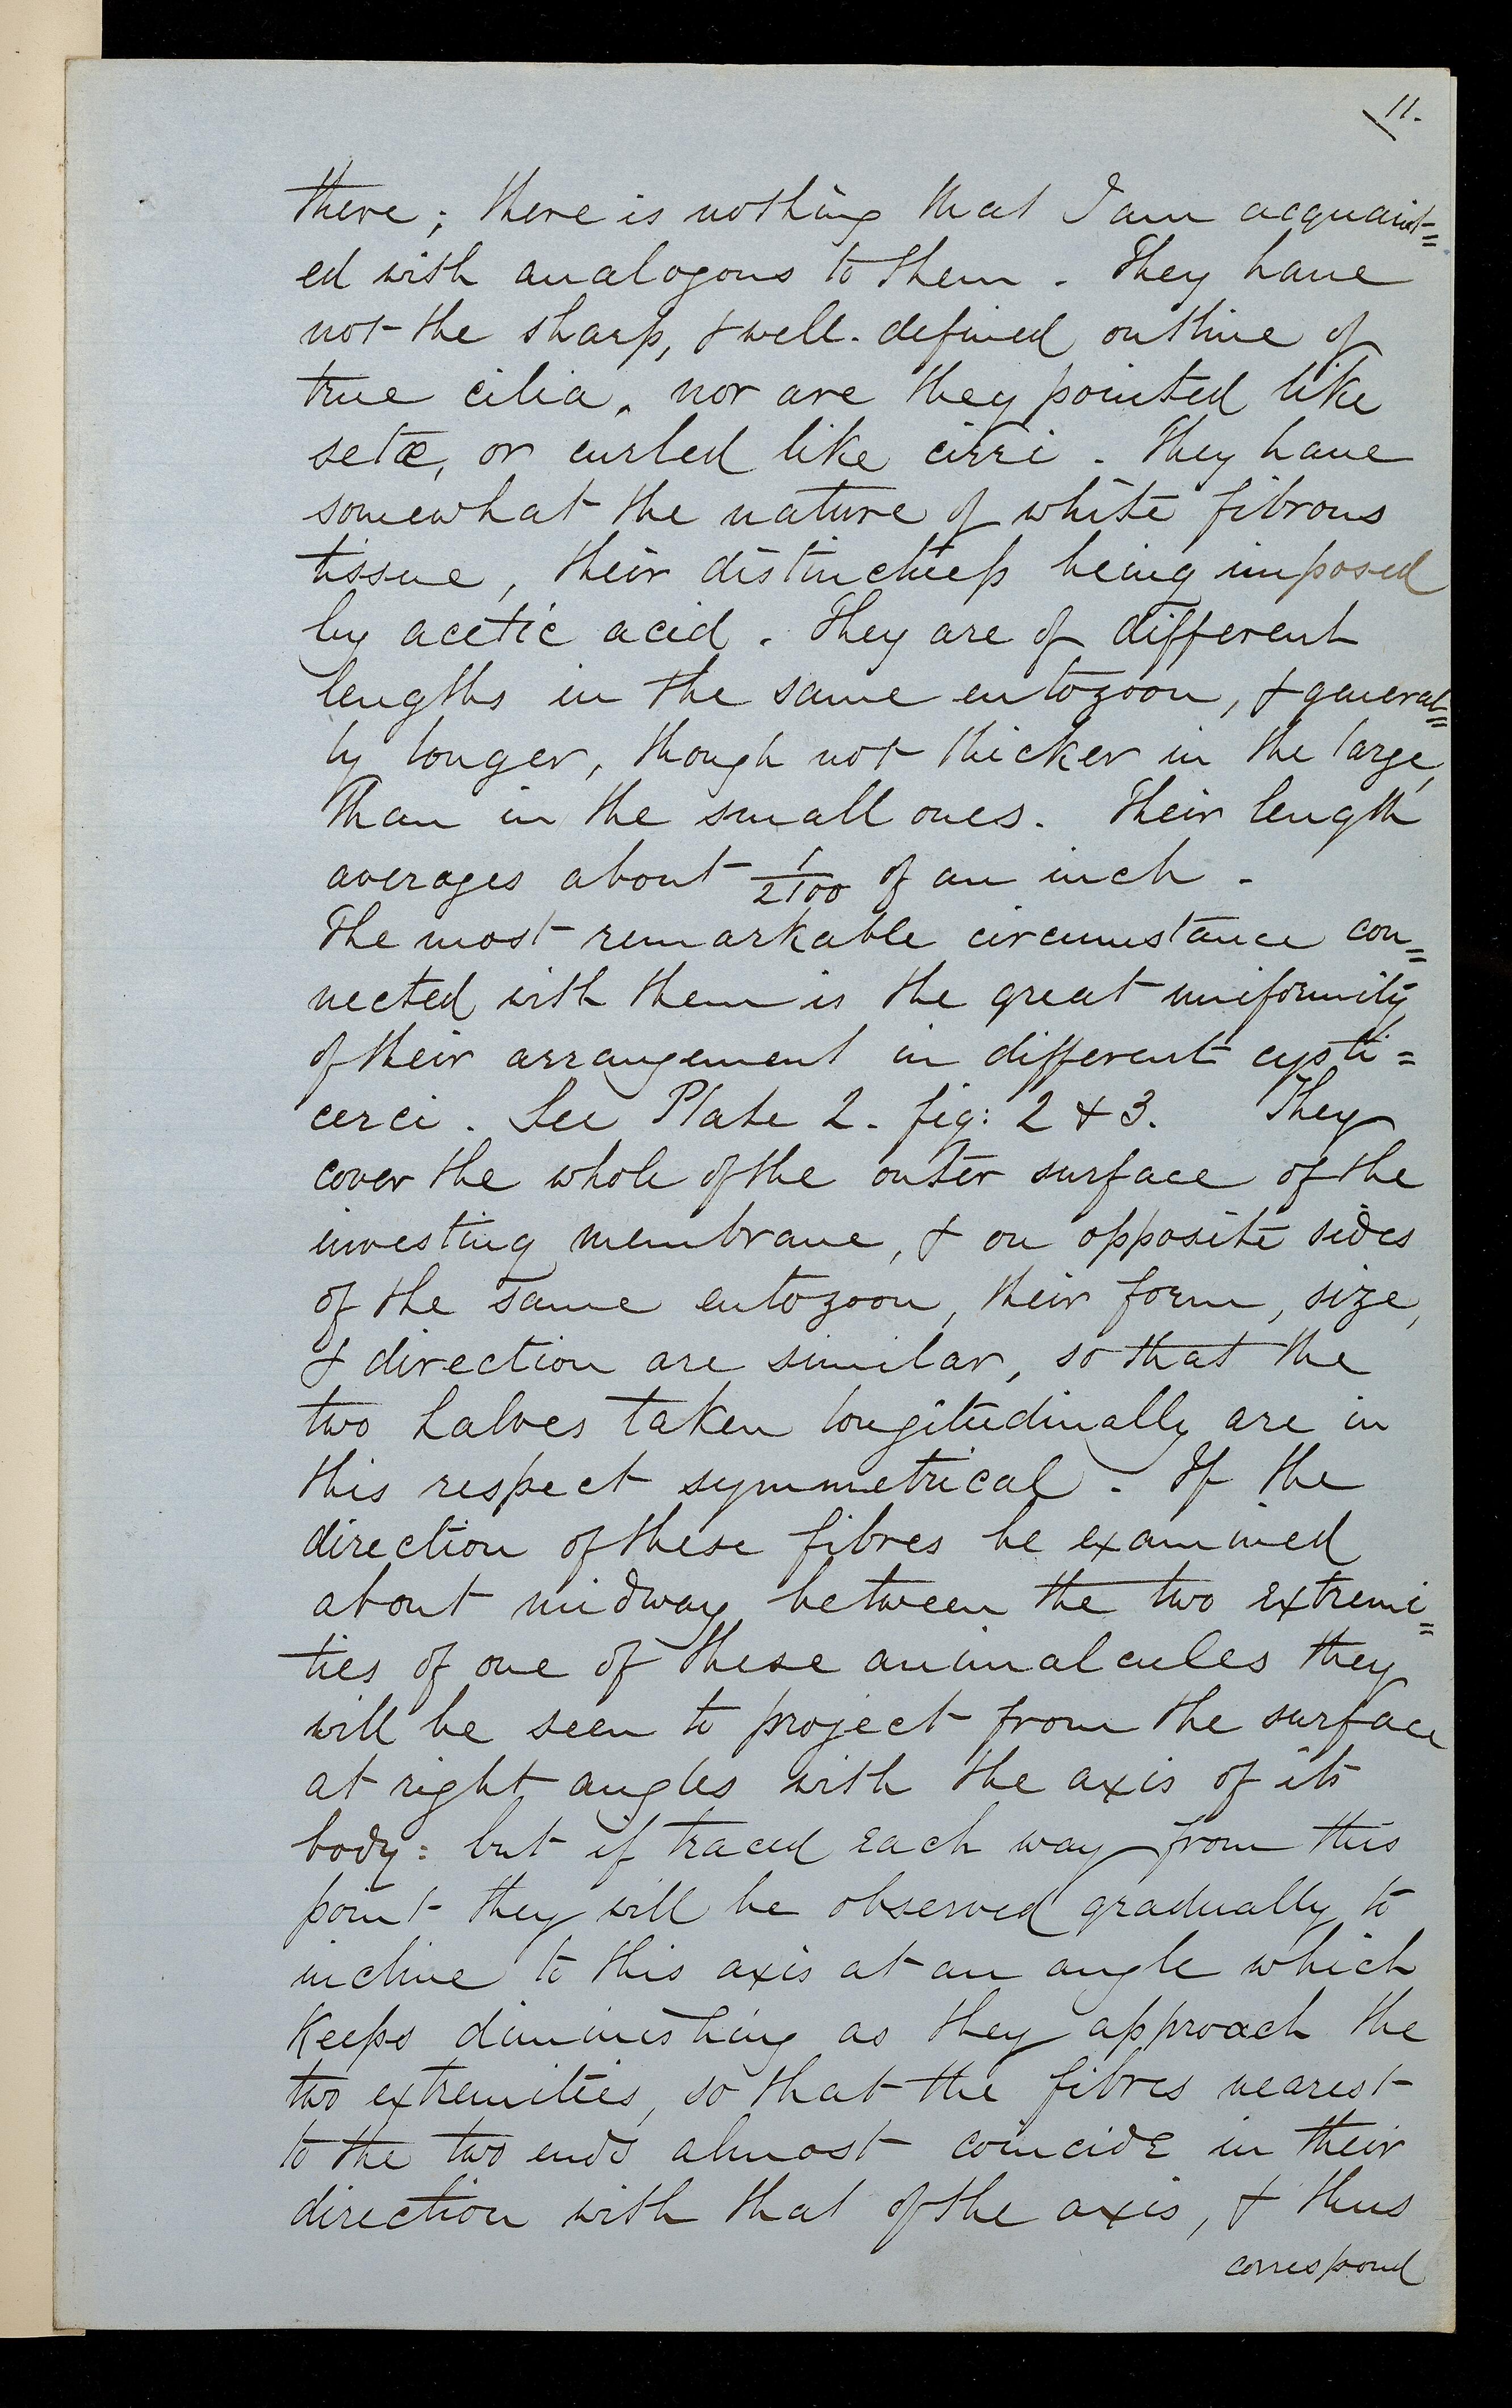 11.
there; there is nothing that I am acquaint=
ed with analogous to them. They have
not the sharp, & well-defined outline of
true cilia, nor are they pointed like
setæ, or curled like cirri. They have
somewhat the nature of white fibrous
tissue, their being imposed
by acetic acid. They are of different
lengths in the same entozoon, & general=
ly longer, though not thicker in the large,
than in the small ones. Their length
averages about 1/2100 of an inch.
The most remarkable circumstance con=
nected with them is the great uniformity
of their arrangement in different cysti=
cerci. See Plate 2. fig: 2 & 3. They
cover the whole of the outer surface of the
investing membrane, & on opposite sides
of the same entozoon, their form, size,
& direction are similar, so that the
two halves taken longitudinally are in
this respect symmetrical. If the
direction of these fibres be examined
about midway between the two extremi=
ties of one of these animalcules they
will be seen to project from the surface
at right angles with the axis of its
body: but if traced each way from this
point they will be observed gradually to
incline to this axis at an angle which
keeps diminishing as they approach the
two extremities, so that the fibres nearest
to the two ends almost coincide in their
direction with that of the axis, & thus
correspond